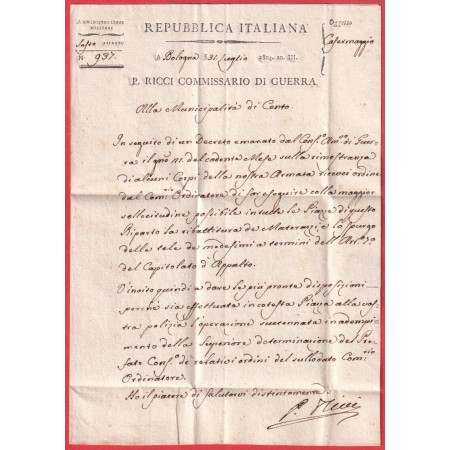 REPUBBLICA ITALIANA
AMMINISTRAZIONE
MILITARE
Oggetto
Casermaggio
Sesto
N.° 937.
A Bologna 31 Luglio 1804. an. III.
P. RICCI COMMISSARIO DI GUERRA
Alla Municipalità di Cento.
In seguito di un Decreto emanato dal di Guer-
ra il del cadente Mese sulla rimostranza
di alcuni Corpi della nostra Armata ricevei ordine
dal Ordinatore di far eseguire colla maggior
sollecitudine possibile in tutte le Piazze di questo
Riparto la ribattitura de Materazzi e lo spurgo
delle tele de medesimi a termini dell' Art.
del Capitolato d'Appalto.
V'invito quindi a dare le più pronte disposizioni
perchè sia effettuata in cotesta Piazza alla vos-
tra polizia l'operazione succennata in adempi-
mento della Superiore determinazione del Pre-
fato e de relativi ordini del sullodato
Ordinatore.
Ho il piacere di salutarvi distintamente.
P. Ricci